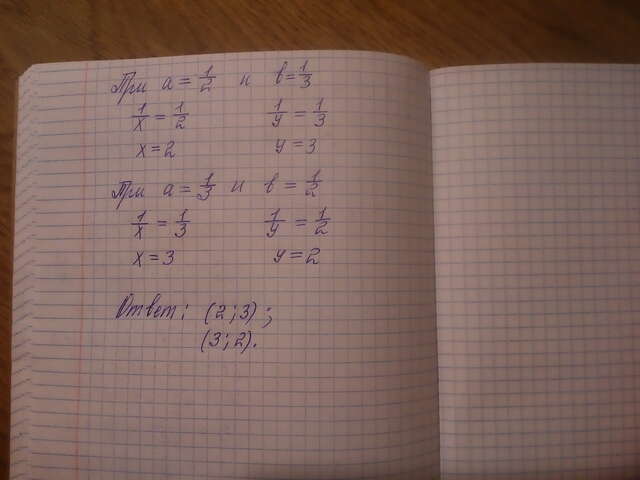 При a = 1/2 и b = 1/3
1/x = 1/2 1/y = 1/3
x = 2 y = 3
При a = 1/3 и b = 1/2
1/x = 1/3 1/y = 1/2
x = 3 y = 2
Ответ: (2; 3);
(3; 2).